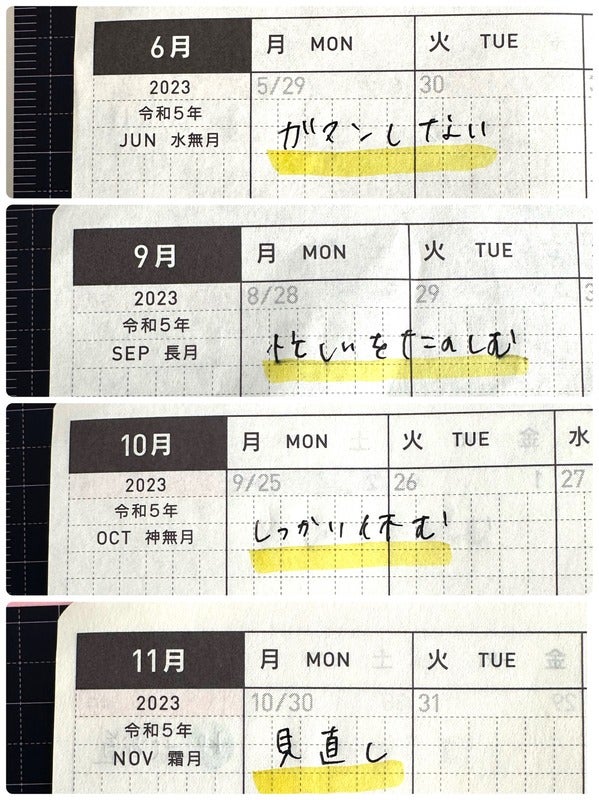 6月 月 MON 火 TUE
2023 5/29 30
令和5年
JUN 水無月
ガマンしない
9月 月 MON 火 TUE
2023 8/28 29
令和5年
SEP 長月
忙しいをたのしむ
10月 月 MON 火 TUE 水
2023 9/25 26 27
令和5年
OCT 神無月
しっかり休む
11月 月 MON 火 TUE
2023 10/30 31
令和5年
NOV 霜月
見直し